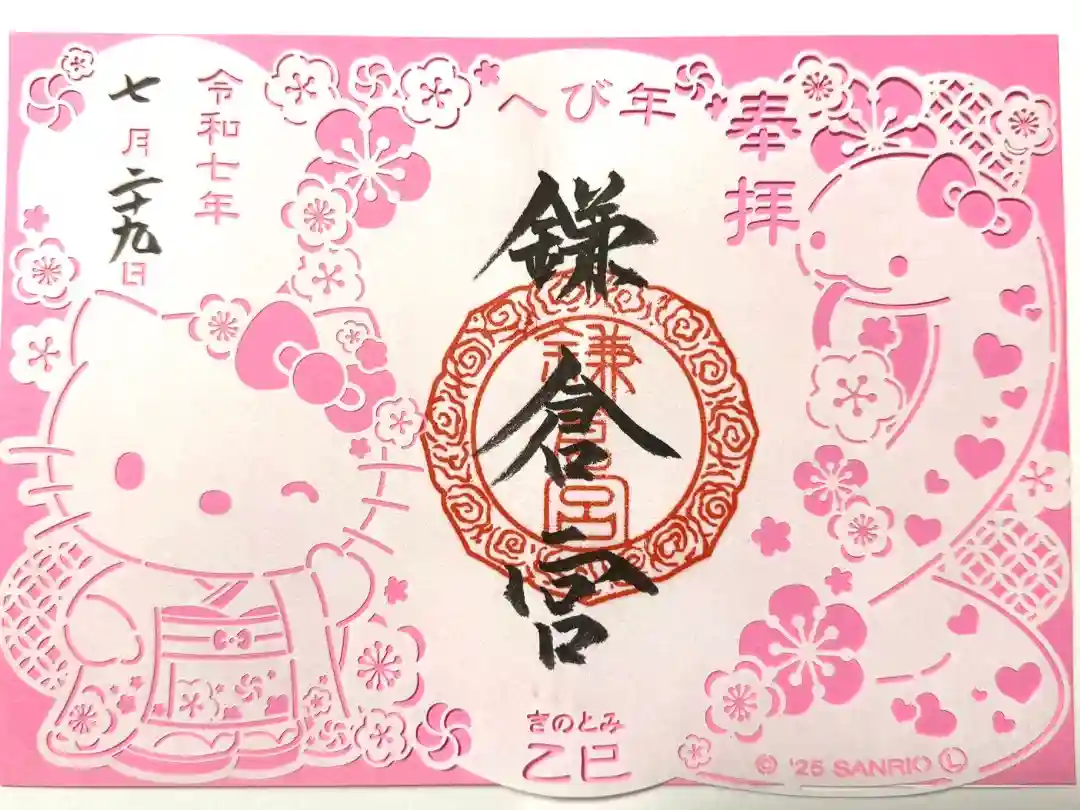 奉拝
へび年
鎌倉宮
鎌倉宮
きのとみ
乙巳
令和七年
七月二十九日
© '25 SANRIO Ⓛ